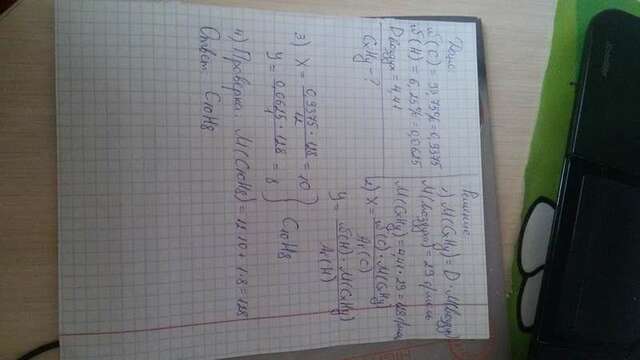 Дано:
ω(C) = 93,75% = 0,9375
ω(H) = 6,25% = 0,0625
Dвоздух = 4,41
CxHy - ?
Решение
1) M(CxHy) = D · M(воздух)
M(воздух) = 29 г/моль
M(CxHy) = 4,41 · 29 = 128 г/моль
2) X = ω(C) · M(CxHy)
Ar(C)
y = ω(H) · M(CxHy)
Ar(H)
3) X = 0,9375 · 128 = 10
12
y = 0,0625 · 128 = 8
1
C10H8
4) Проверка. M(C10H8) = 12·10 + 1·8 = 128
Ответ C10H8